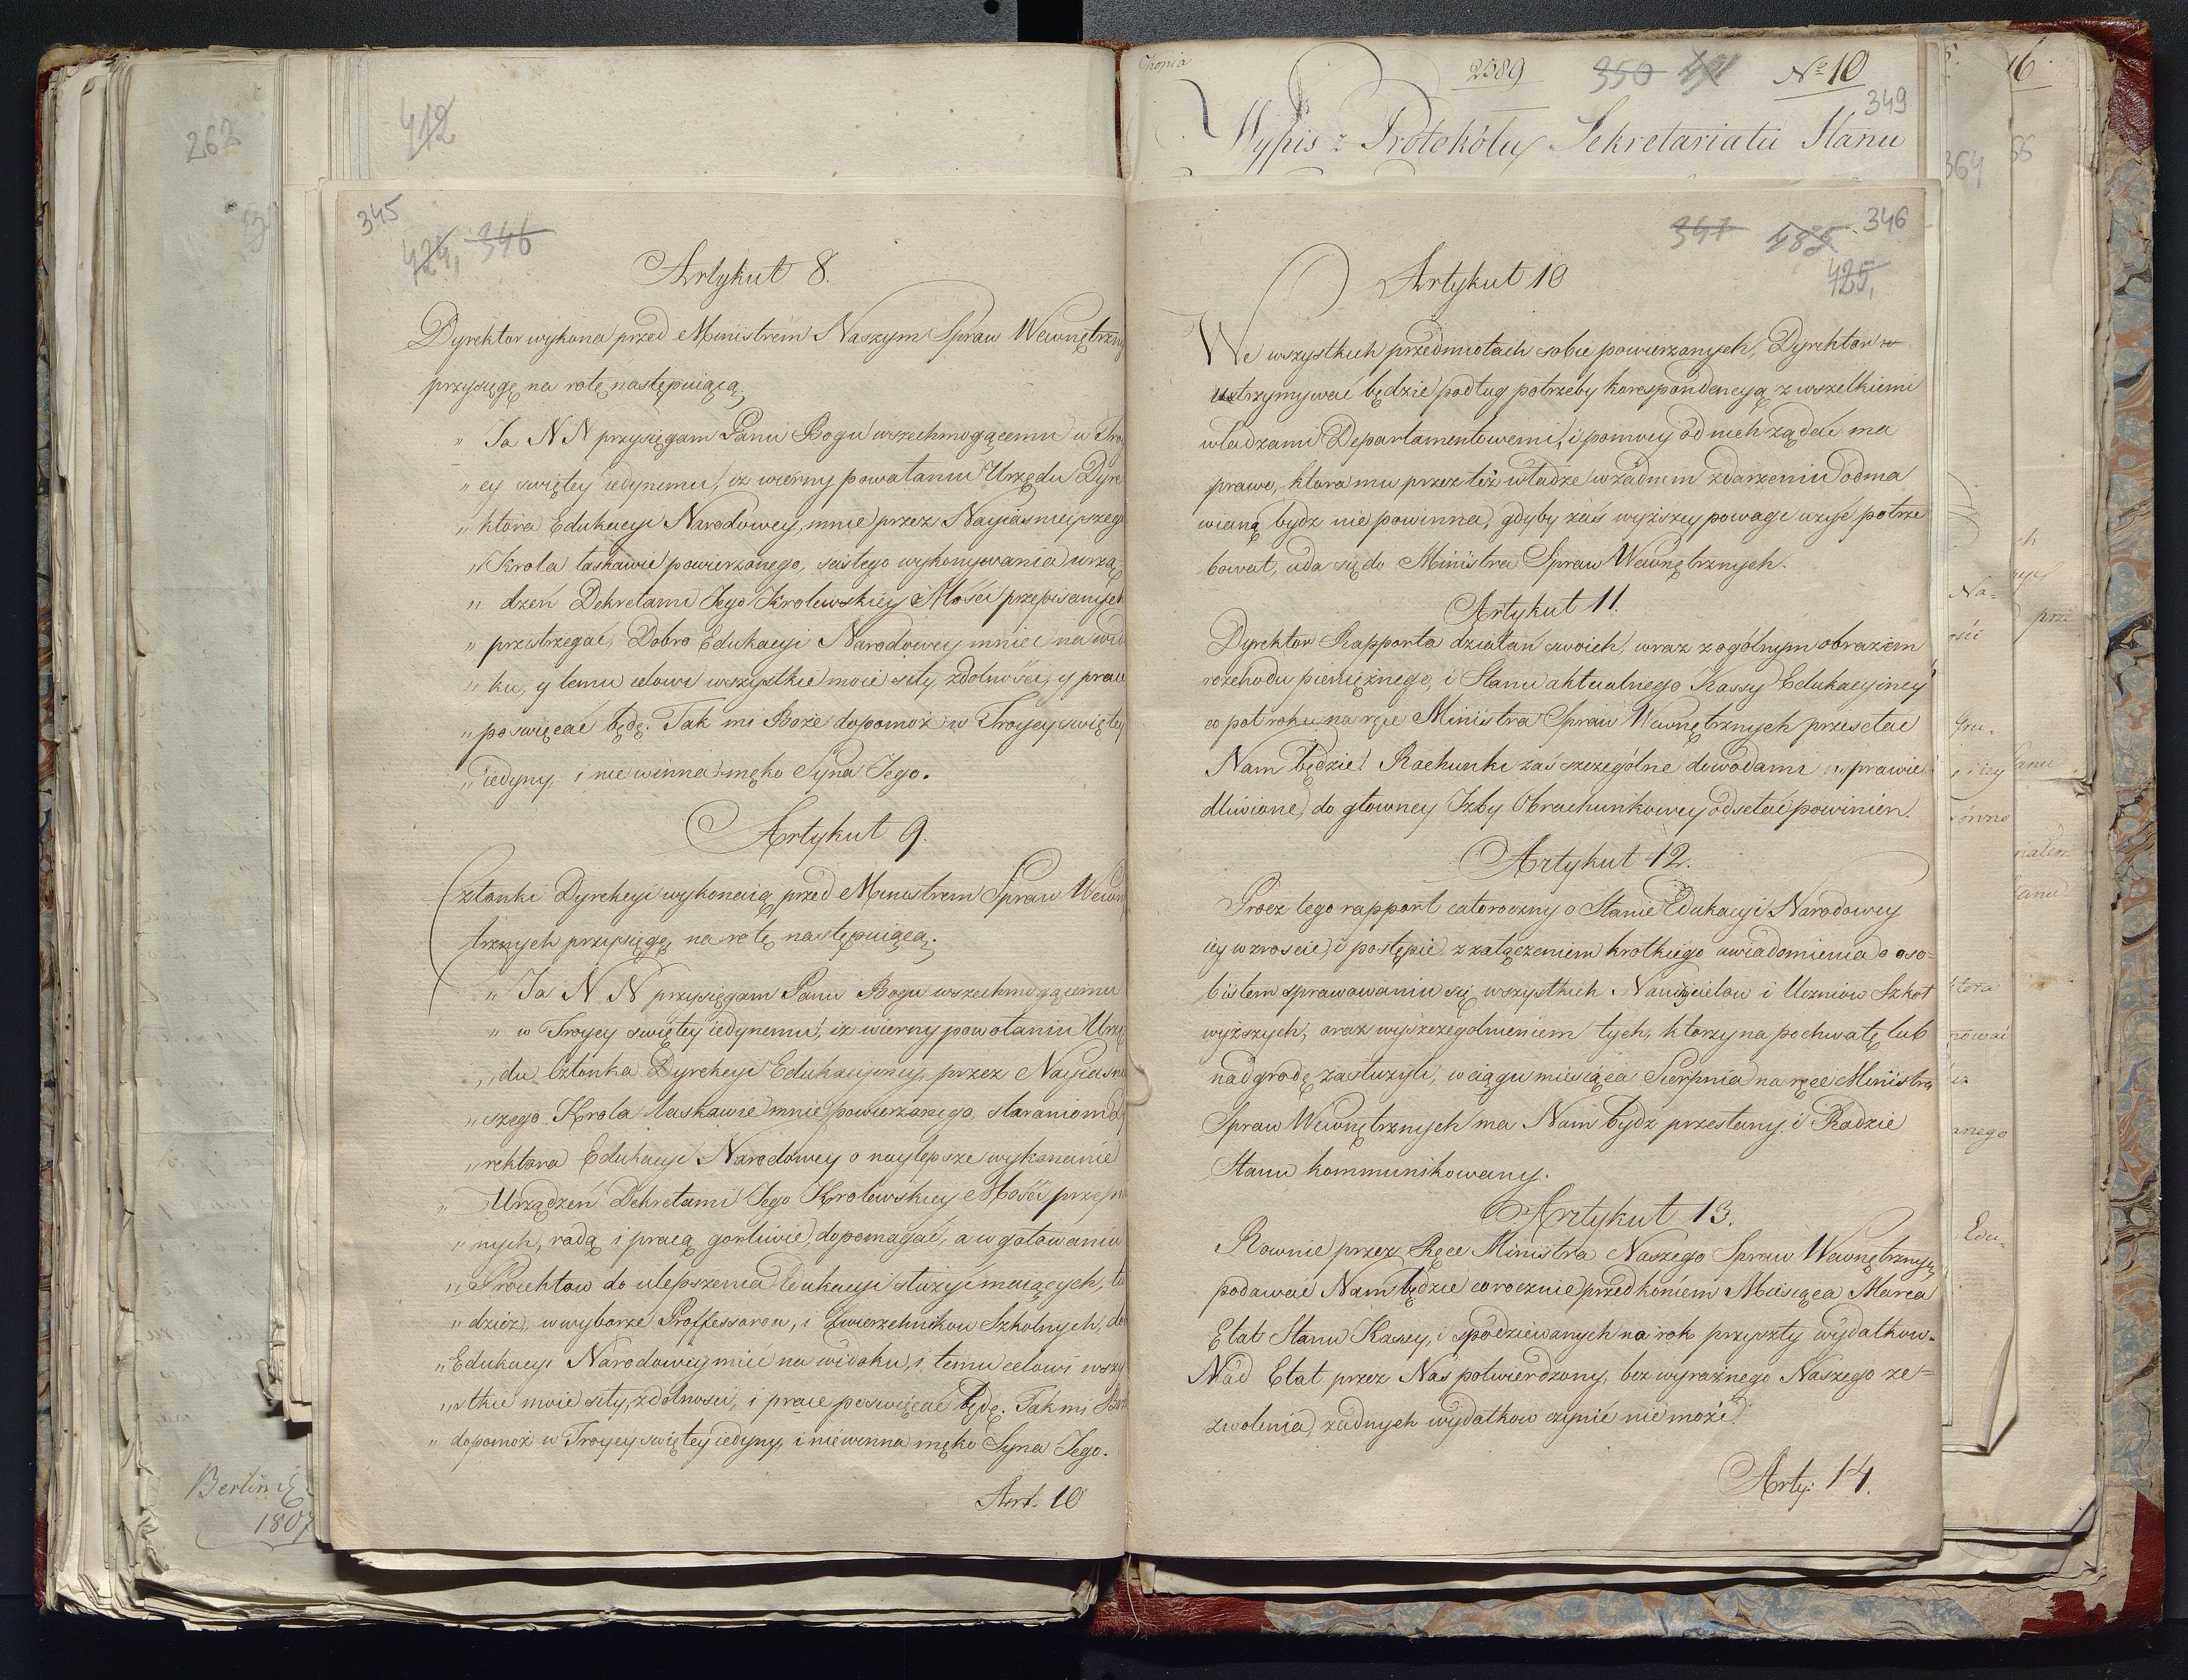 262
412
345
424, 346
Artykuł 8.
Dyrektor wykona przed Ministrem Naszym Spraw Wewnętrzny
przysięgę na rotę następuiącą,
" Ja N N przysięgam Panu Bogu wszechmogącemu w Troy
" cy swiętey iedynemu, iz wierny powołaniu Urzędu Dyre
" ktora Edukacyi Narodowey, mnie przez Nayiasnieyszeg
" Krola łaskawie powierzonego, scisłego wykonywania urzą
" dzeń Dekretami Jego Krolewskiey Mości przepisanych
" przestrzegać, Dobro Edukacyi Narodowey mnieć na wido
" ku, y temu celowi wszystkie moie siły, zdolności, y prace
" poswięcać będę. Tak mi Boże dopomoż w Troycy swiętey
" iedyny, i niewinna męko Syna Jego.
Artykuł 9.
Członki Dyrekcyi wykonaią przed Ministrem Spraw Wewnę
trznych przysięgę, na rotę następuiącą.
" Ja N N przysięgam Panu Bogu wszechmogącemu
" w Troycy swiętey iedynemu, iz wierny powołaniu Urzę
" du Członka Dyrekcyi Edukacyiney przez Nayiasnie
" szego Krola łaskawie mnie powierzonego, staraniom Dy
" rektora Edukacyi Narodowey o naylepsze wykonanie
" Urządzeń Dekretami Jego Krolewskiey Mości przepisa
" nych, radą i pracą gorliwie dopomagać, a w gotowaniu
" Proiektow do ulepszenia Edukacyi służyć maiących, tu
" dzież, w wyborze Proffessorow, i Zwierzchnikow Szkolnych, do
" Edukacyi Narodowey mieć na widoku, i temu celowi wszy
" stkie moie siły, zdolności, i prace poswięcać będę. Tak mi Boże
" dopomoż w Troycy swiętey iedyny, i niewinna męko Syna Jego.
Art. 10
Berlin
1807
Chopia
2389 350 No 10
349
Wypis z Protokółu Sekretariatu Stanu
347 485 346
425,
Artykuł 10
We wszystkich przedmiotach sobie powierzonych, Dyrektor w
utrzymywać będzie podług potrzeby korespondencyą z wszelkiemi
władzami Departamentowemi, i pomocy od nich żądać ma
prawo, ktora mu przez też władze w żadnem zdarzeniu odma
wianą bydz nie powinna, gdyby zaś wyższey powagi użyć potrze
bował, uda się do Ministra Spraw Wewnętrznych.
Artykuł 11.
Dyrektor Rapporta działań swoich, wraz z ogólnym obrazem
rozchodu pieniężnego, i Stanu aktualnego Kassy Edukacyiney
co poł roku na ręce Ministra Spraw Wewnętrznych przesełać
Nam będzie! Rachunki zaś szczególne dowodami usprawie
dliwione, do głowney Izby Obrachunkowey odsełać powinien.
Artykuł 12.
Procz tego rapport całoroczny o Stanie Edukacyi Narodowey
iey wzroscie, i postępie z załączeniem krotkiego uwiadomienia o oso=
bistem sprawowaniu się wszystkich Nauczycielow i Uczniow Szkoł
wyższych, oraz wyszczegolnieniem tych, ktorzy na pochwałę lub
nadgrodę zasłużyli, w ciągu miesiąca Sierpnia na ręce Ministra
Spraw Wewnętrznych ma Nam bydź przesłany i Radzie
Stanu kommunikowany.
Artykuł 13.
Rownie przez Ręce Ministra Naszego Spraw Wewnętrznych
podawać Nam będzie corocznie przed końcem Miesiąca Marca
Etat Stanu Kassy, i spodziewanych na rok przyszły wydatkow.
Nad Etat przez Nas potwierdzony, bez wyraźnego Naszego ze=
zwolenia, żadnych wydatkow czynić nie może.
Arty. 14.
16
364
Na=
przé
ości
Gru=
ktora
nować
iz
anego
Edu=